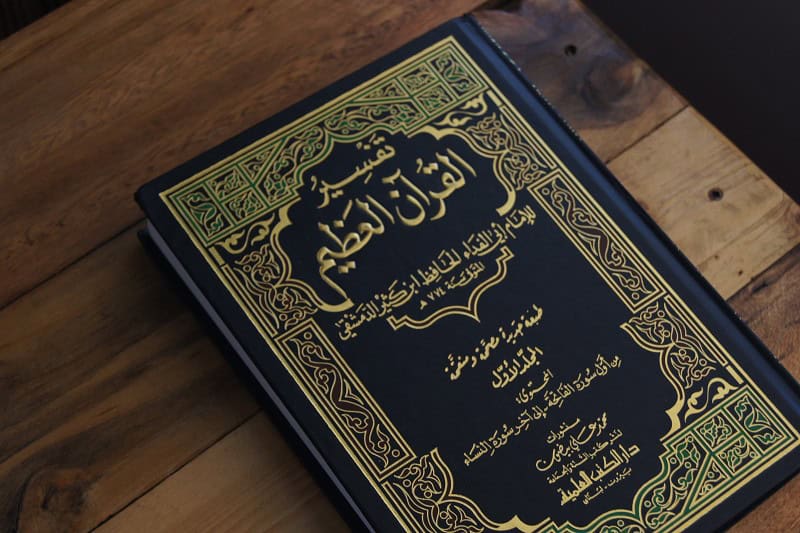 تفسير
القرآن العظيم
للإمام أبي الفداء الحافظ ابن كثير الدمشقي
المتوفى سنة ٧٧٤ هـ
طبعة جديدة مصححة ومنقحة
المجلد الأول
المحتوى:
من أول سورة الفاتحة - إلى آخر سورة النساء
منشورات
محمد علي بيضون
لنشر كتب السنة والجماعة
دار الكتب العلمية
بيروت - لبنان